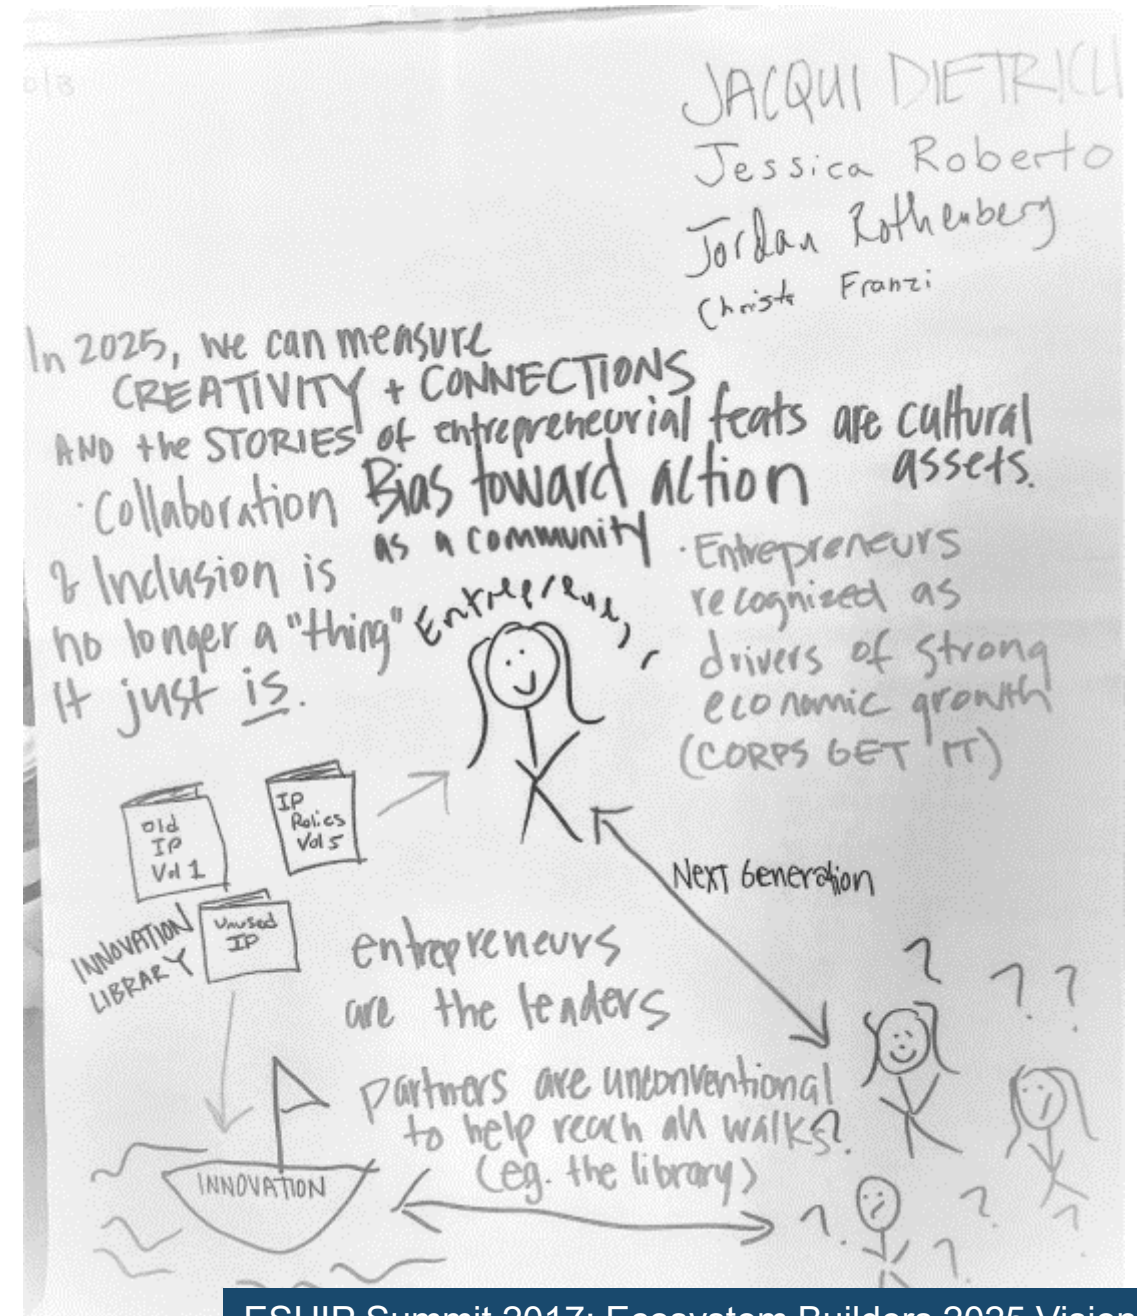 JACQUI DIETRICH
Jessica Roberto
Jordan Rothenberg
Christi Franzi
In 2025, we can measure
CREATIVITY + CONNECTIONS
AND the STORIES of entrepreneurial feats are cultural
assets.
· Collaboration
& Inclusion is
no longer a "thing"
It just is.
Bias toward action
as a community
· Entrepreneurs
recognized as
drivers of strong
economic growth
(CORPS GET IT)
Entrepreneur
Old
IP
Vol 1
IP
Polices
Vol 5
Unused
IP
INNOVATION
LIBRARY
Next Generation
entrepreneurs
are the leaders
partners are unconventional
to help reach all walks.
(eg. the library)
INNOVATION
?
? ?
?
? ?
? ?
?
ESHIP Summit 2017: Ecosystem Builders 2025 Vision